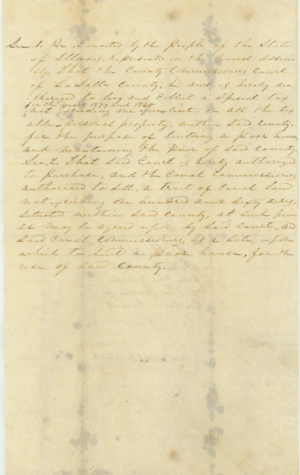 Sec 1. Be it enacted by the people of the State
of Illinois, represented in the General Assem-
bly, That the County Commissioners Court
of La Salle County, be and is hereby au-
thorized to levy and collect a special tax
for the years 1839 and 1840
not exceeding on all the tax
able personal property, within said county,
for the purpose of building a poor house
and maintaining the poor of said county.
Sec 2. That said Court is hereby authorized
to purchase, and the Canal Commissioners
authorized to sell, a tract of Canal land
not exceeding one hundred and sixty acres
situated within said county, at such price
as may be agreed upon by said Court, and
said Canal Commissioners, as a site upon
which to build a poor house, for the
use of said County.